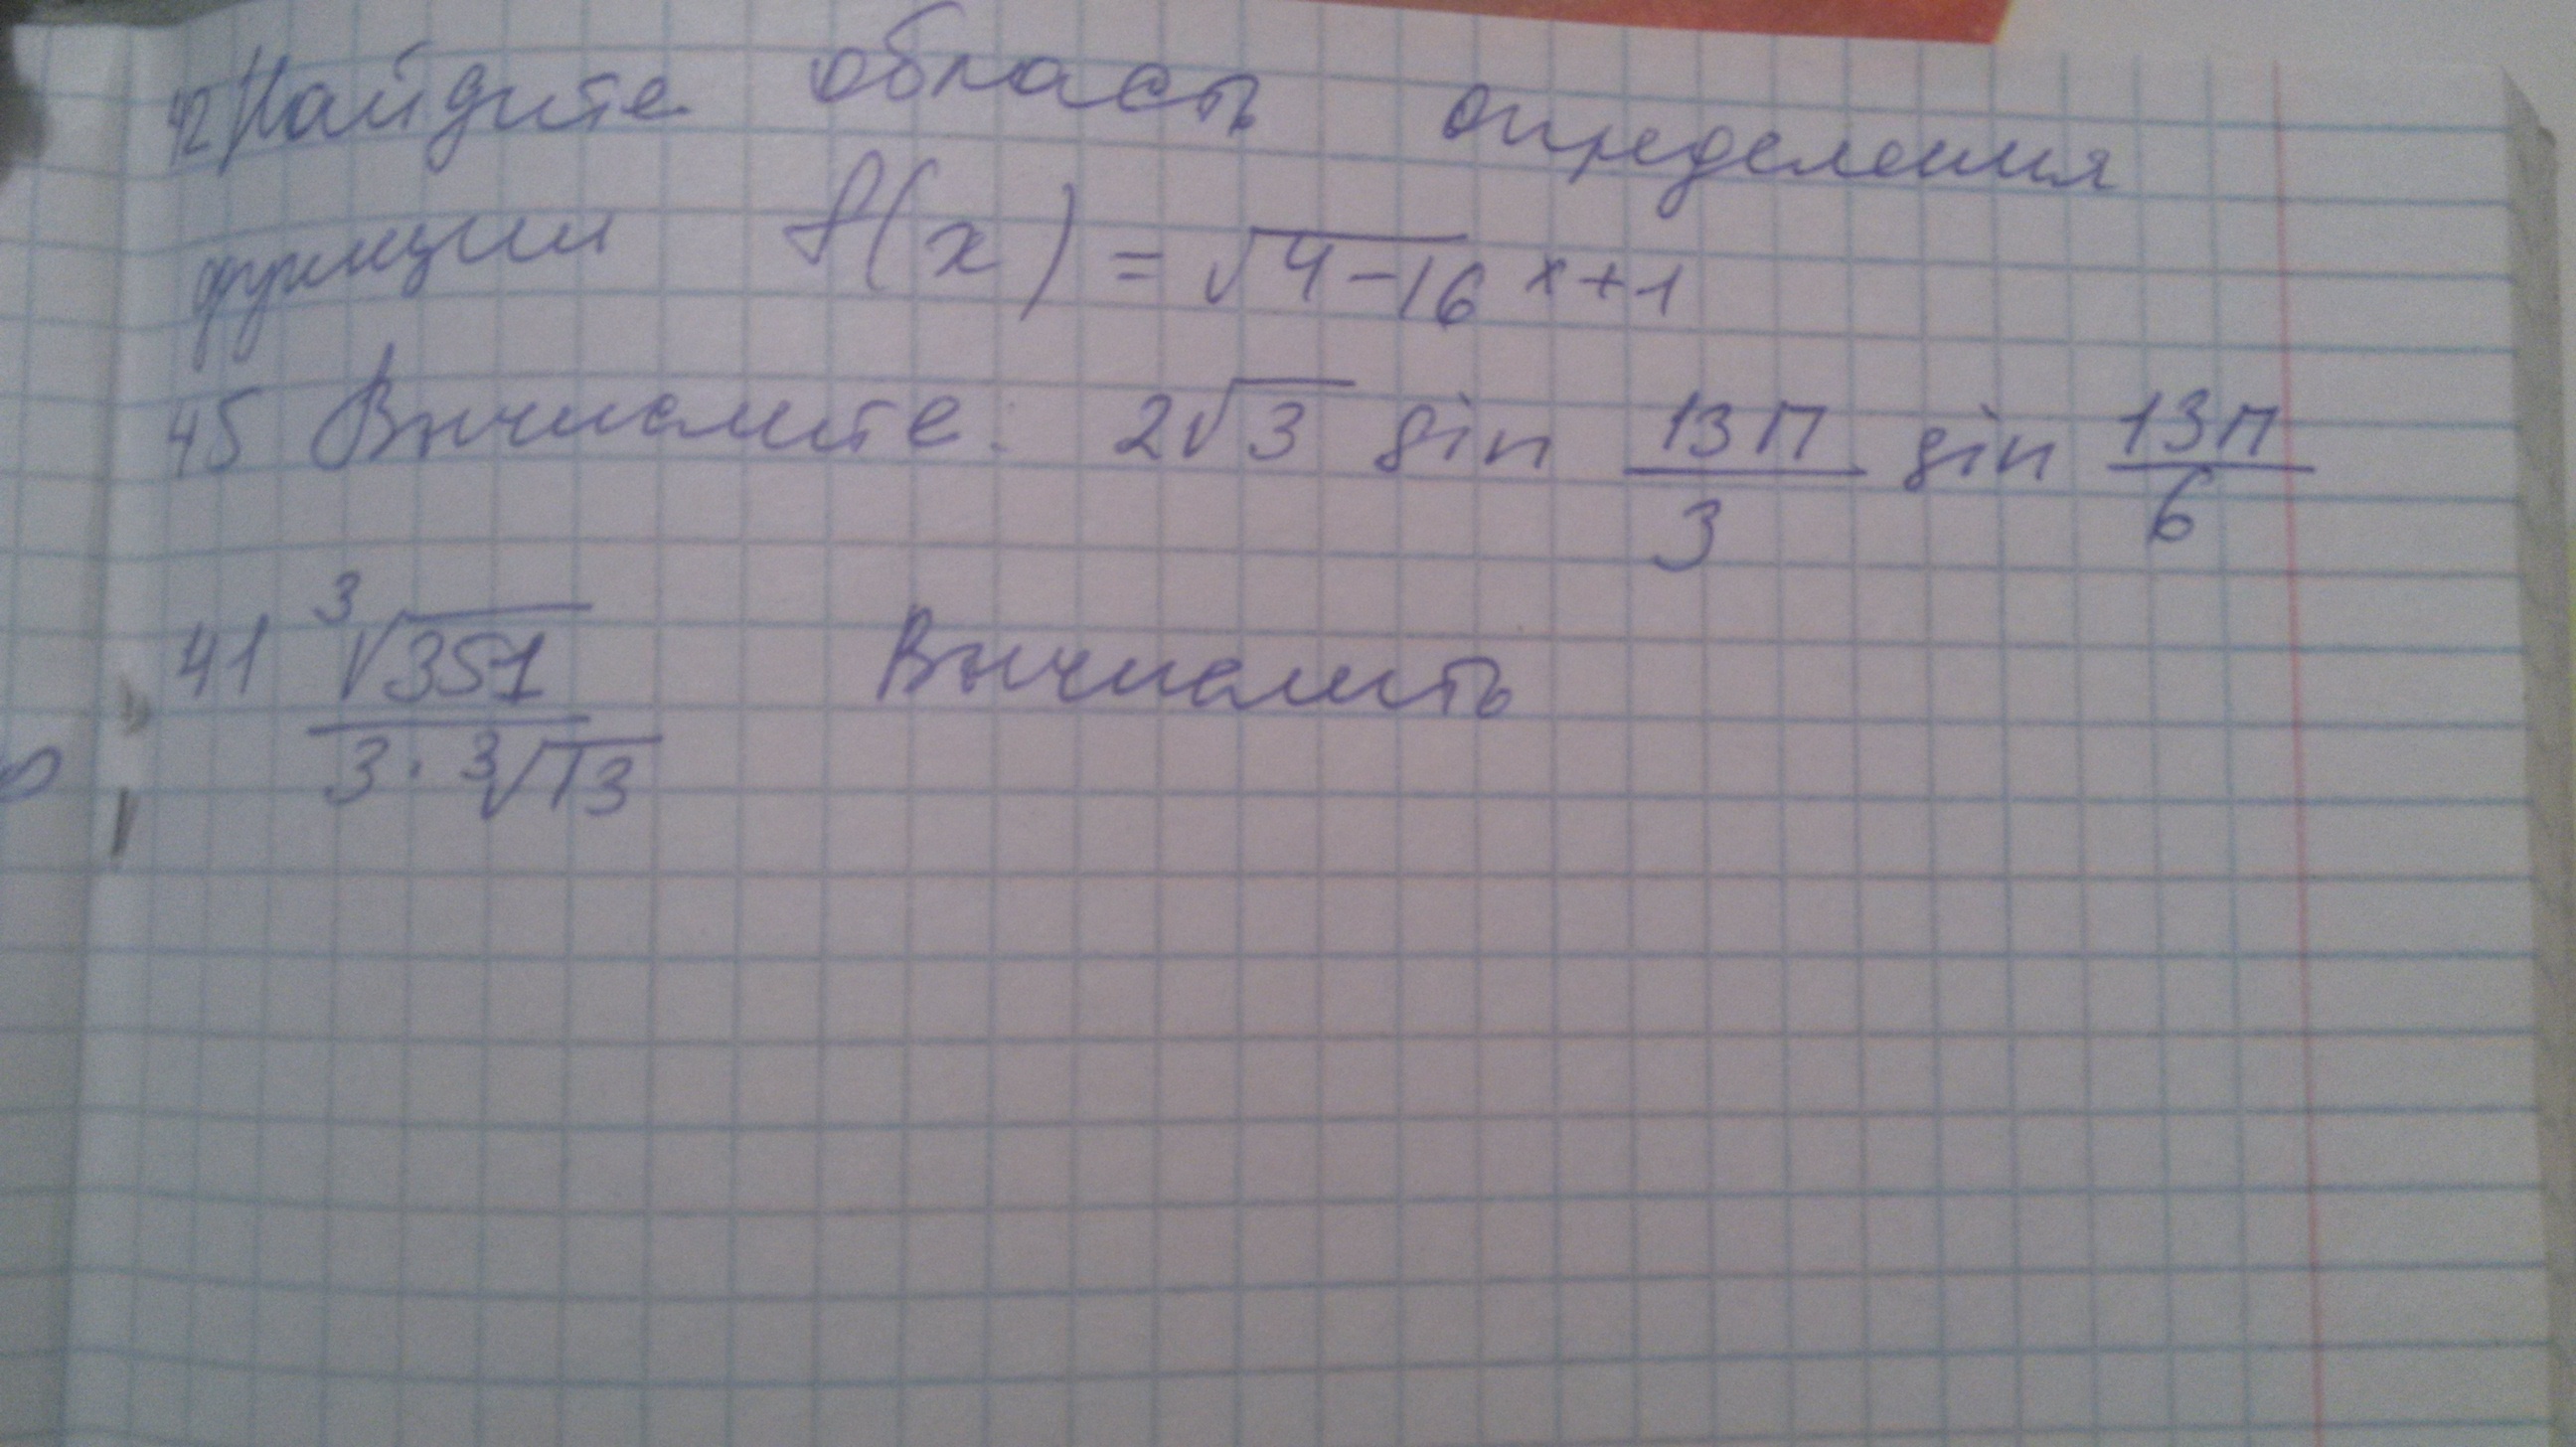 42 Найдите область определения
функции f(x) = √4-16 x+1
45 Вычислите: 2√3 sin 13π/3 sin 13π/6
41 ³√351 / 3·³√13 Вычислить